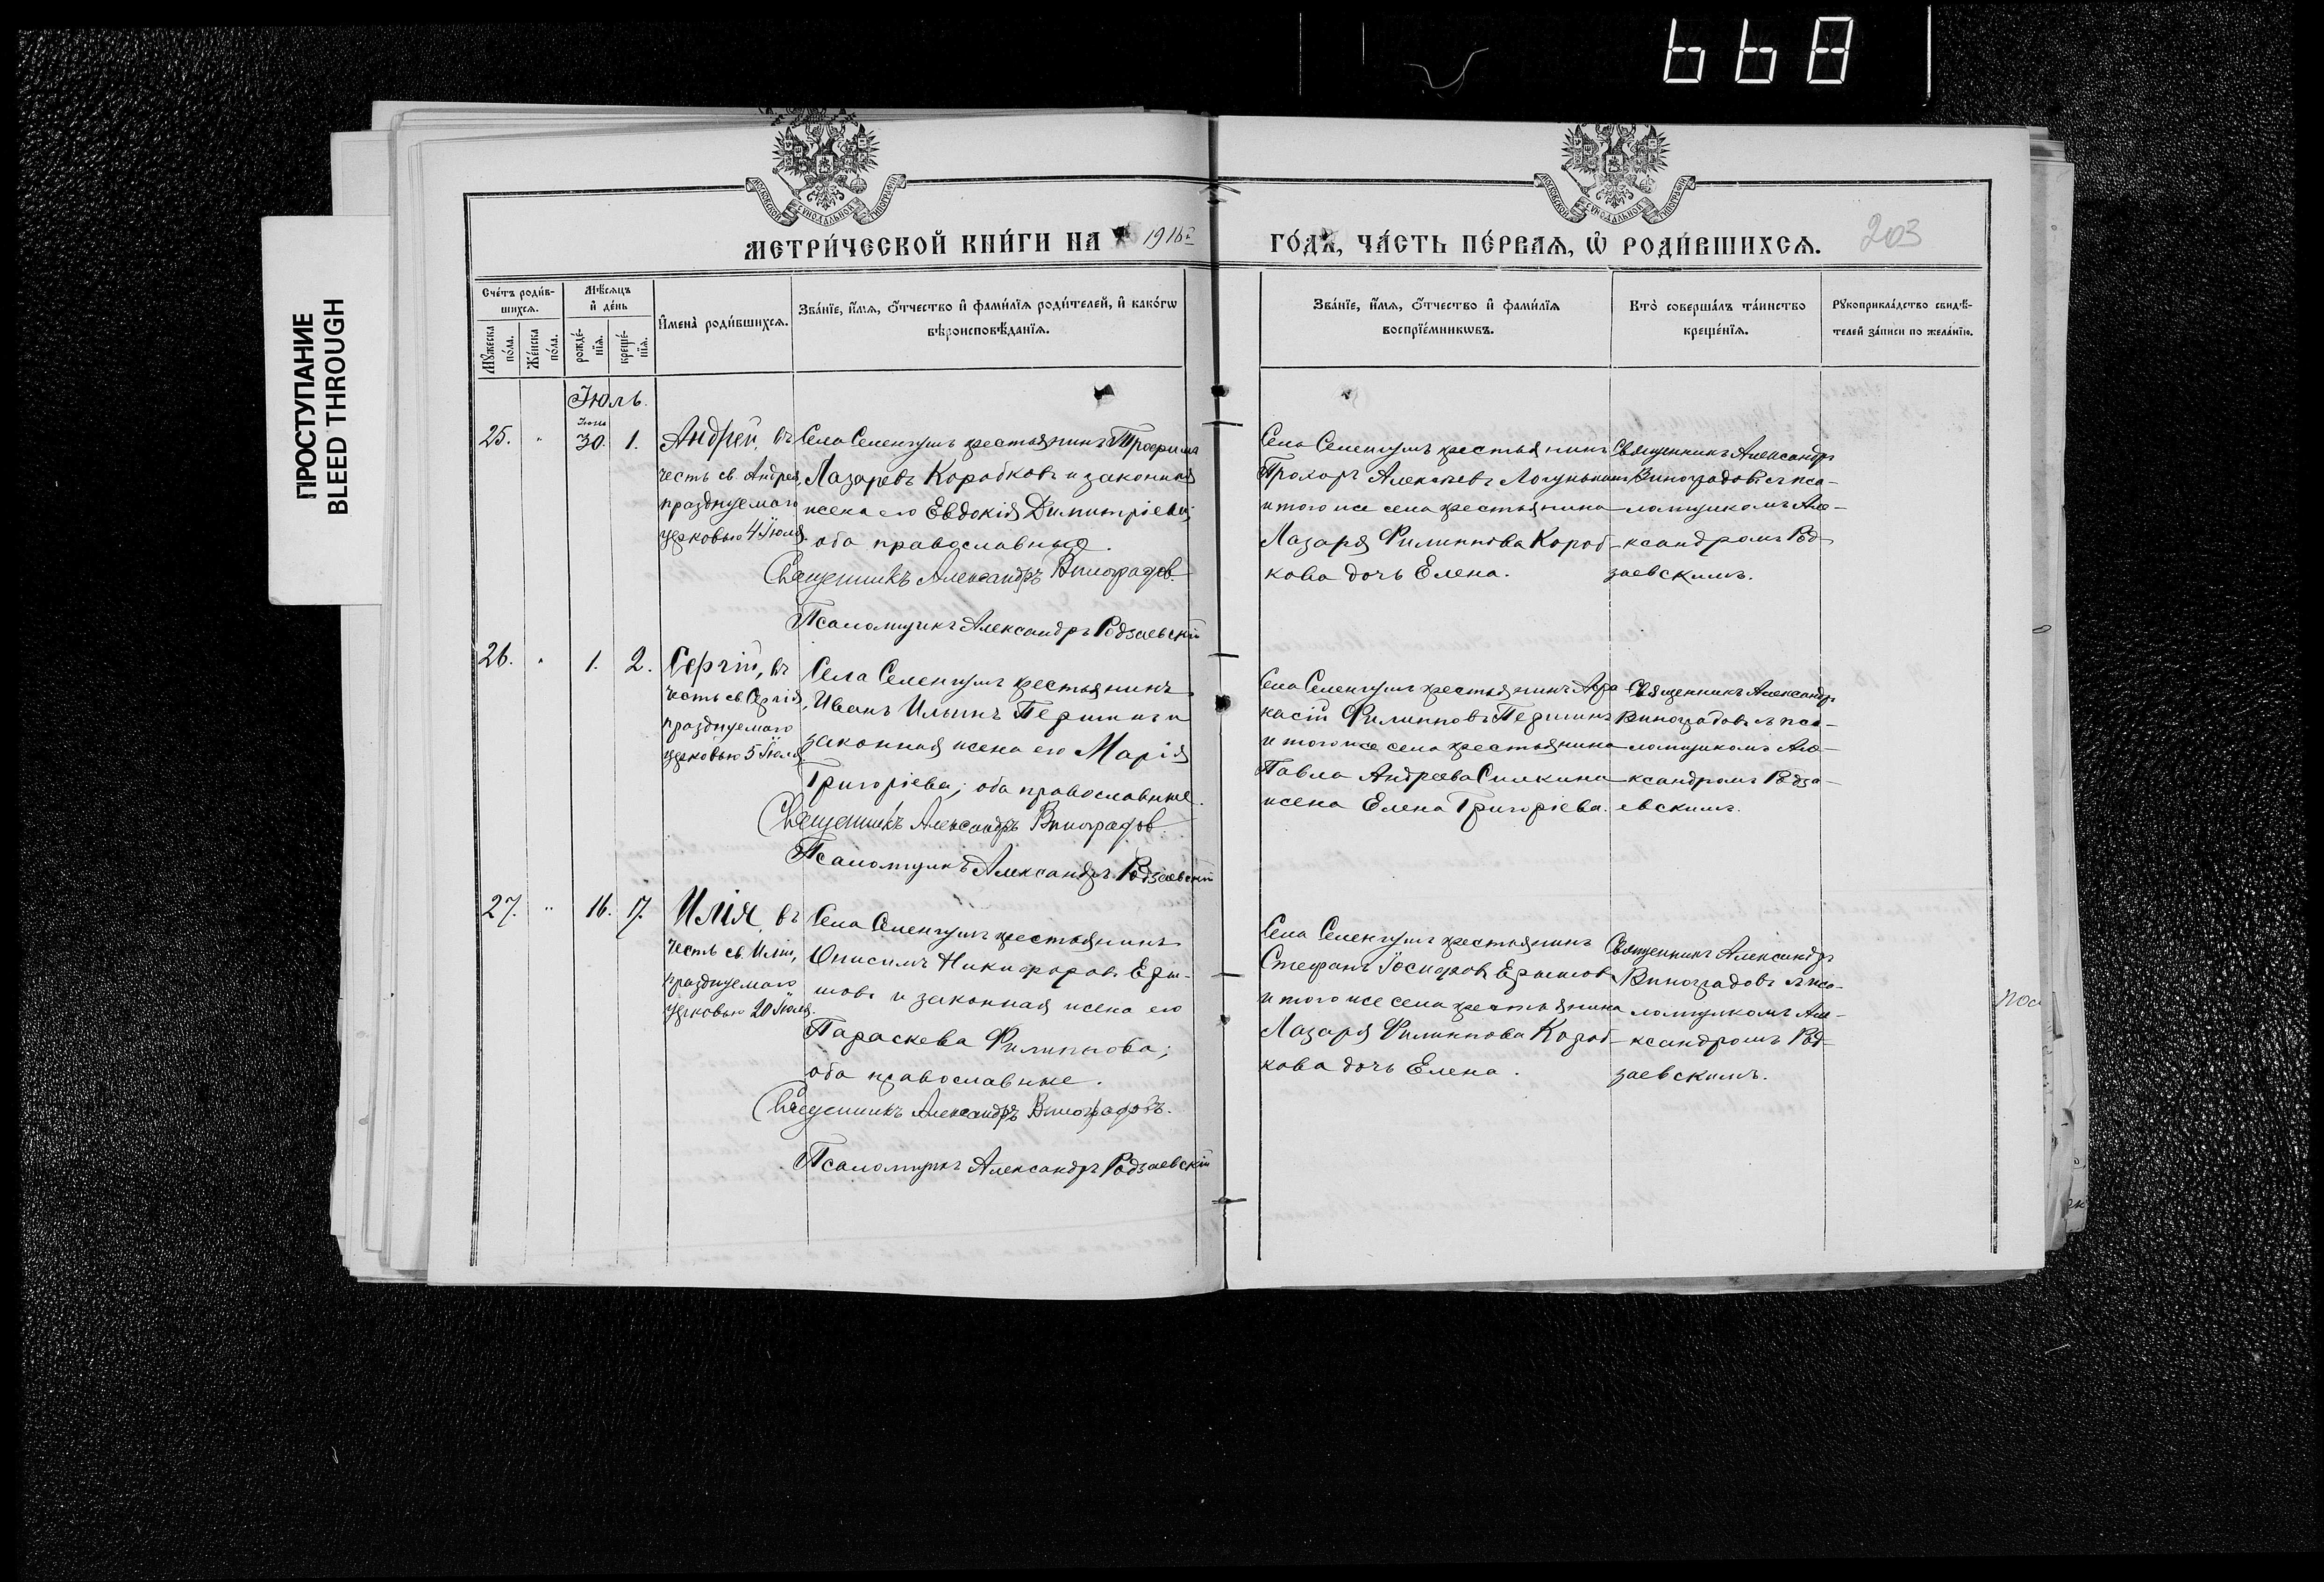 668
ПРОСТУПАНИЕ
BLEED THROUGH
МОСКОВСКОЙ СѴНОДАЛЬНОЙ ТИПОГРАФІИ
МОСКОВСКОЙ СѴНОДАЛЬНОЙ ТИПОГРАФІИ
МЕТРИ́ЧЕСКОЙ КНИ́ГИ НА 1916й
ГО́ДЪ, ЧА́СТЬ ПЕ́РВАЯ, Ѡ҆ РОДИ́ВШИХСѦ. 203
Сче́тъ роди́в-
шихсѧ.
Мꙋ́жеска по́ла.
Же́нска по́ла.
Мѣ́сѧцъ
и҆ де́нь
рожде́-
нїѧ.
креще́-
нїѧ.
И҆мена̀ роди́вшихсѧ.
Зва́нїе, и҆́мѧ, ѻ҆́тчество и҆ фами́лїѧ роди́телей, и҆ како́гѡ
вѣроисповѣ́данїѧ.
Зва́нїе, и҆́мѧ, ѻ҆́тчество и҆ фами́лїѧ
воспрїе́мникѡвъ.
Кто̀ соверша́лъ та́инство
креще́нїѧ.
Рꙋкоприкла́дство свидѣ́-
телей за́писи по жела́нїю.
Іюль.
25. " Іюня 30. 1.
Андрей, въ
честь св. Андрея,
празднуемаго
церковью 4 Іюля.
Села Селенгушъ крестьянинъ Трофимъ
Лазаревъ Коробковъ и законная
жена его Евдокія Димитріева;
оба православные.
Священникъ Александръ Виноградов.
Псаломщикъ Александръ Родзаевскій
Села Селенгушъ крестьянинъ
Прохоръ Алексѣевъ Логунькинъ
и того же села крестьянина
Лазаря Филиппова Короб-
кова дочь Елена.
Священникъ Александръ
Виноградовъ съ пса-
ломщикомъ Але-
ксандромъ Род-
заевскимъ.
26. " 1. 2.
Сергій, въ
честь св. Сергія,
празднуемаго
церковью 5 Іюля.
Села Селенгушъ крестьянинъ
Иванъ Ильинъ Першинъ и
законная жена его Марія
Григоріева; оба православные.
Священникъ Александръ Виноградов.
Псаломщикъ Александръ Родзаевскій
Села Селенгушъ крестьянинъ
Филипповъ Першинъ
и того же села крестьянина
Павла Андреева Силкина
жена Елена Григоріева.
Священникъ Александръ
Виноградовъ съ пса-
ломщикомъ Але-
ксандромъ Родза-
евскимъ.
27. " 16. 17.
Илія, въ
честь св. Иліи,
празднуемаго
церковью 20 Іюля.
Села Селенгушъ крестьянинъ
Онисимъ Никифоровъ Еры-
шовъ и законная жена его
Параскева Филиппова;
оба православные.
Священникъ Александръ Виноградовъ.
Псаломщикъ Александръ Родзаевскій
Села Селенгушъ крестьянинъ
Стефанъ Іосифовъ Ерышовъ
и того же села крестьянина
Лазаря Филиппова Короб-
кова дочь Елена.
Священникъ Александръ
Виноградовъ съ пса-
ломщикомъ Але-
ксандромъ Род-
заевскимъ.